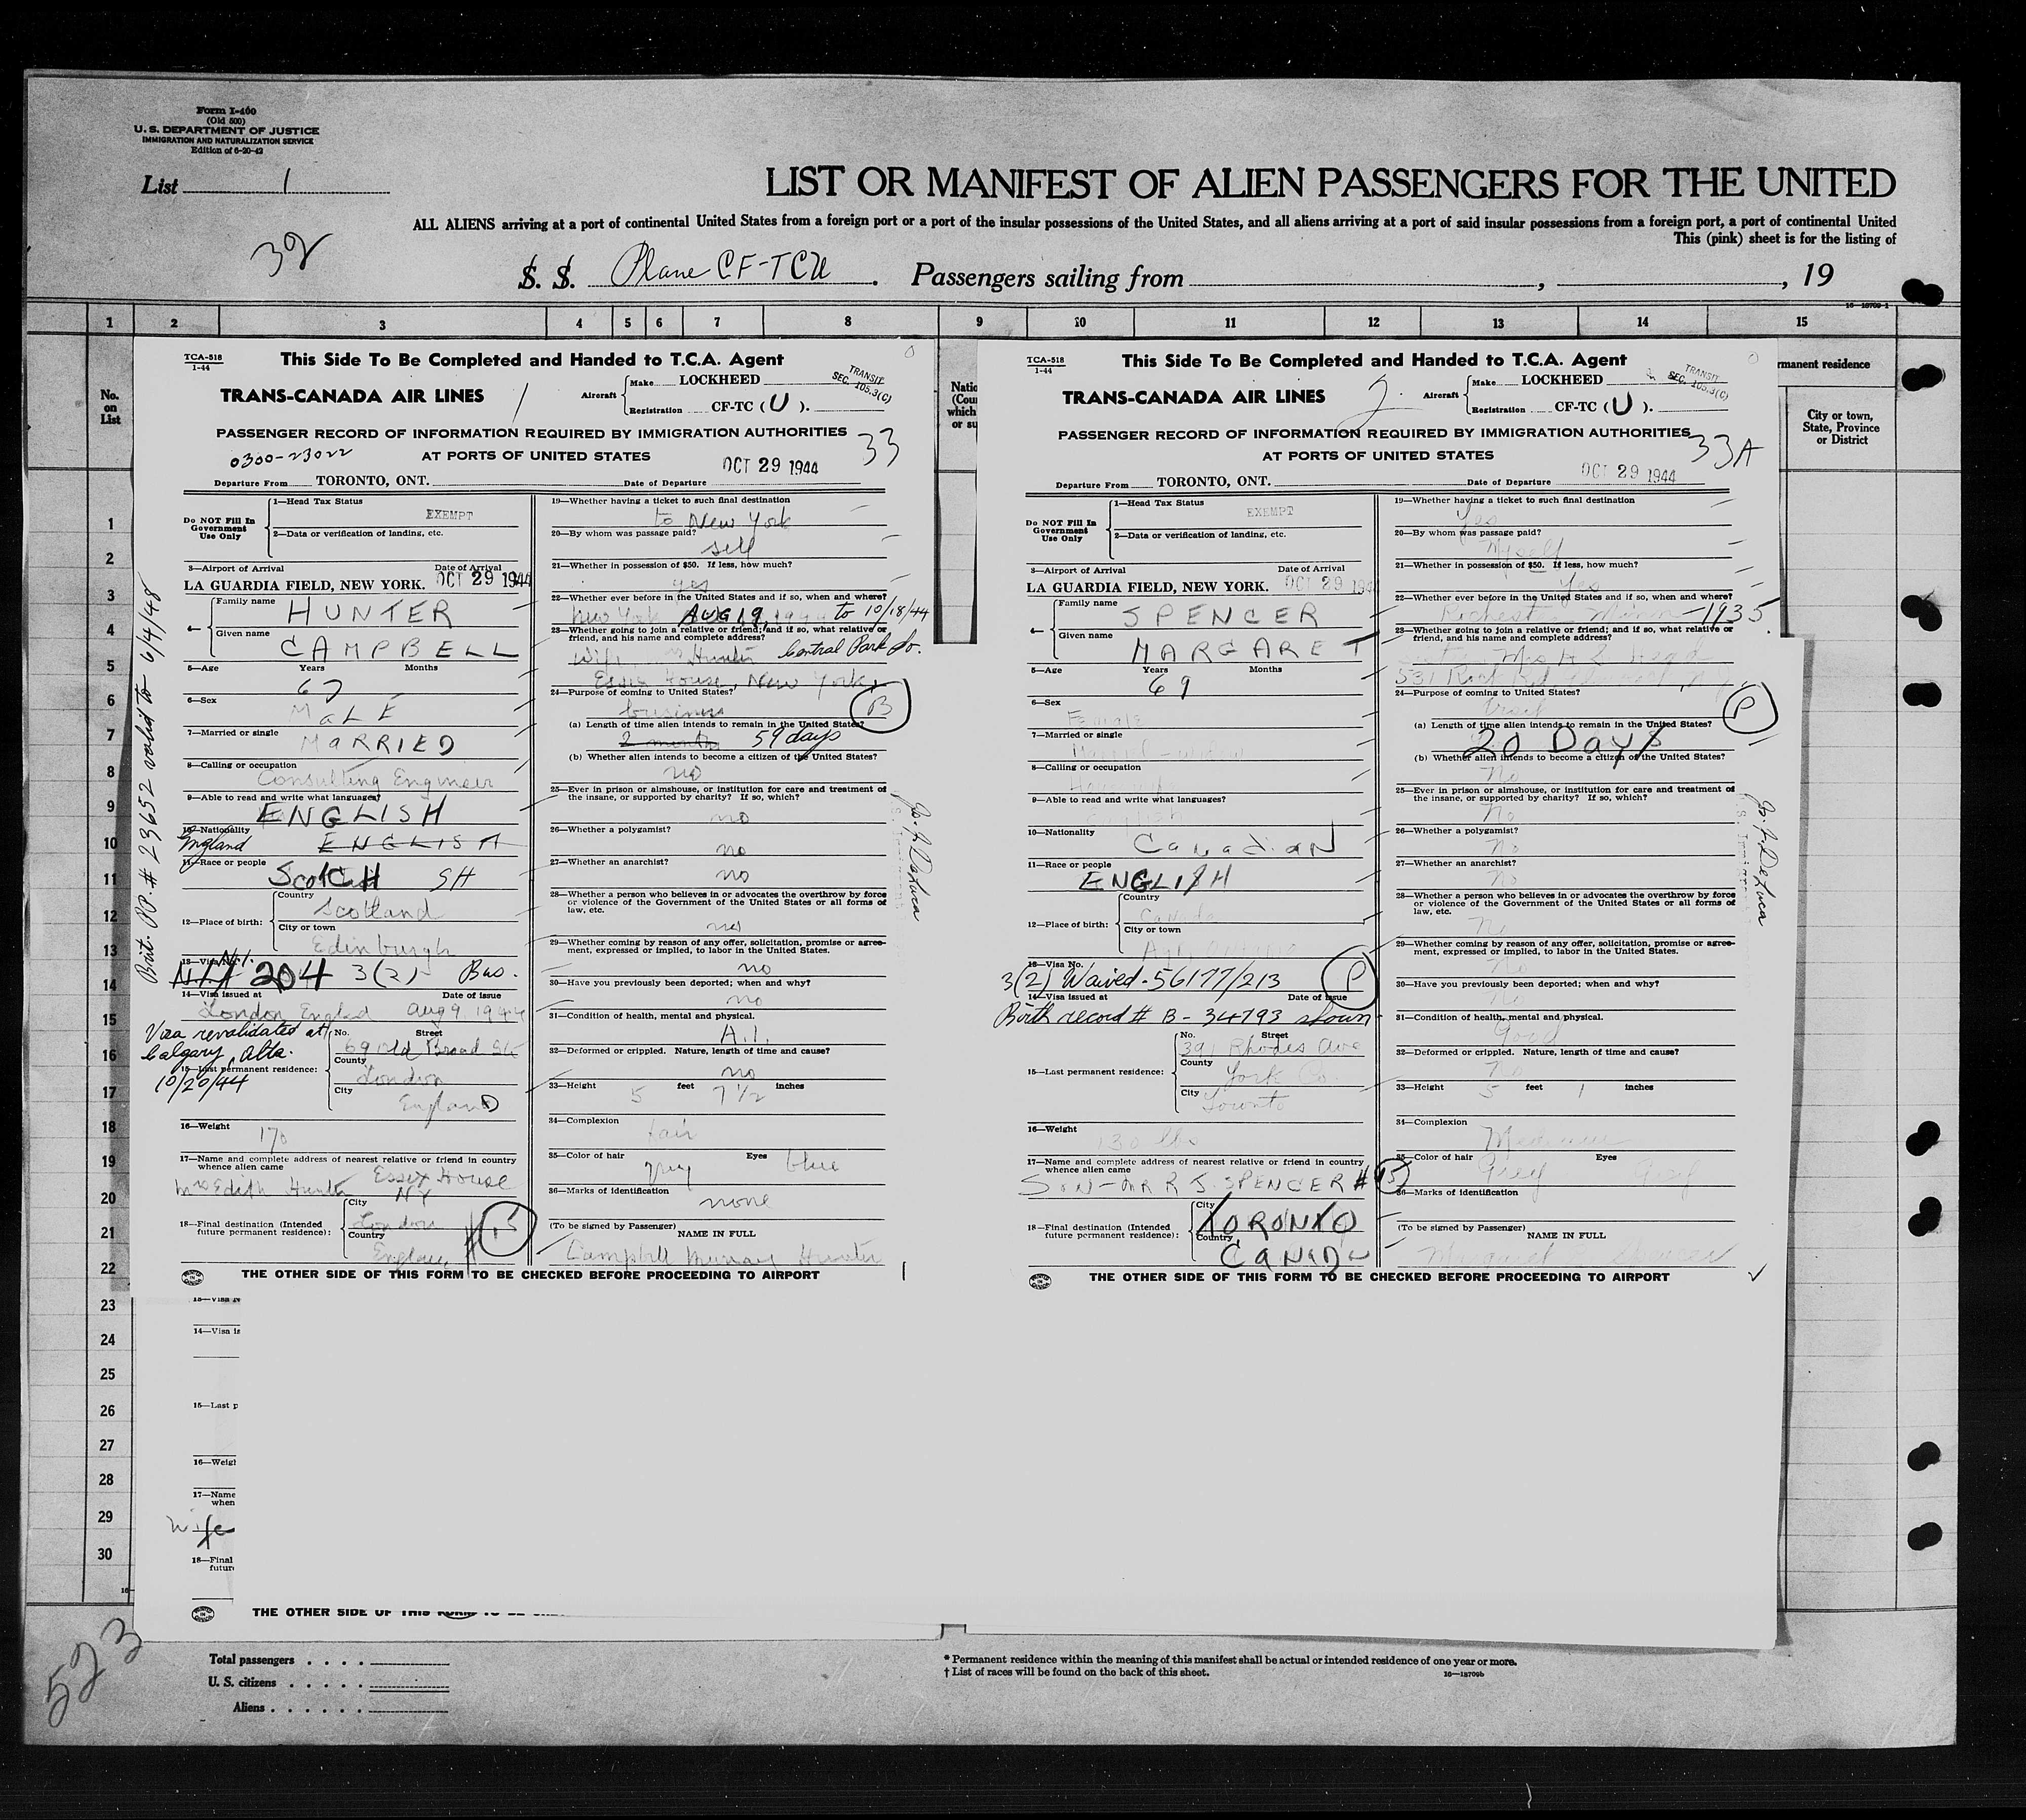 Form I-460
(Old 500)
U. S. DEPARTMENT OF JUSTICE
IMMIGRATION AND NATURALIZATION SERVICE
Edition of 6-20-42
List 1
LIST OR MANIFEST OF ALIEN PASSENGERS FOR THE UNITED
ALL ALIENS arriving at a port of continental United States from a foreign port or a port of the insular possessions of the United States, and all aliens arriving at a port of said insular possessions from a foreign port, a port of continental United
This (pink) sheet is for the listing of
S. S. Plane CF-TCU . Passengers sailing from , , 19
1 2 3 4 5 6 7 8 9 10 11 12 13 14 15
No. on List
rmanent residence
City or town, State, Province or District
TCA-518
1-44
This Side To Be Completed and Handed to T.C.A. Agent
TRANS-CANADA AIR LINES 1
Aircraft Make LOCKHEED
Registration CF-TC (U).
TRANSIT
SEC. 105.3(C)
PASSENGER RECORD OF INFORMATION REQUIRED BY IMMIGRATION AUTHORITIES
33
0300-23022
AT PORTS OF UNITED STATES
OCT 29 1944
Departure From TORONTO, ONT. Date of Departure
Do NOT Fill In Government Use Only
1—Head Tax Status
EXEMPT
2—Data or verification of landing, etc.
3—Airport of Arrival Date of Arrival
LA GUARDIA FIELD, NEW YORK. OCT 29 1944
4— Family name HUNTER
Given name CAMPBELL
5—Age Years Months
6—Sex
MALE
7—Married or single
MARRIED
8—Calling or occupation
Consulting Engineer
9—Able to read and write what languages?
ENGLISH
10—Nationality
England ENGLISH
11—Race or people
SCOTCH SH
12—Place of birth: Country
Scotland
City or town
Edinburgh
13—Visa No.
204 3(2) Bus.
14—Visa issued at Date of issue
London England Aug 9 1944
Visa revalidated at
Calgary, Alta.
10/20/44
15—Last permanent residence: No. Street
69 Old Broad St
County
London
City
England
16—Weight
170
17—Name and complete address of nearest relative or friend in country whence alien came
Essex House
Mrs Edith Hunter NY
18—Final destination (Intended future permanent residence): City
London
Country
England #15
Brit. PP. # 23652 valid to 6/4/48
19—Whether having a ticket to such final destination
to New York
20—By whom was passage paid?
self
21—Whether in possession of $50. If less, how much?
yes
22—Whether ever before in the United States and if so, when and where?
New York AUG 19, 1944 to 10/18/44
23—Whether going to join a relative or friend; and if so, what relative or friend, and his name and complete address?
Wife Hunter Central Park So.
Essex House, New York.
24—Purpose of coming to United States?
business B
(a) Length of time alien intends to remain in the United States?
2 months 59 days
(b) Whether alien intends to become a citizen of the United States?
no
25—Ever in prison or almshouse, or institution for care and treatment of the insane, or supported by charity? If so, which?
no
26—Whether a polygamist?
no
27—Whether an anarchist?
no
28—Whether a person who believes in or advocates the overthrow by force or violence of the Government of the United States or all forms of law, etc.
no
29—Whether coming by reason of any offer, solicitation, promise or agreement, expressed or implied, to labor in the United States.
no
30—Have you previously been deported; when and why?
no
31—Condition of health, mental and physical.
A.1.
32—Deformed or crippled. Nature, length of time and cause?
no
33—Height 5 feet 7½ inches
34—Complexion
fair
35—Color of hair grey Eyes blue
36—Marks of identification
none
(To be signed by Passenger) NAME IN FULL
Campbell Murray Hunter
THE OTHER SIDE OF THIS FORM TO BE CHECKED BEFORE PROCEEDING TO AIRPORT
TCA-518
1-44
This Side To Be Completed and Handed to T.C.A. Agent
TRANS-CANADA AIR LINES 2.
Aircraft Make LOCKHEED
Registration CF-TC (U).
TRANSIT
SEC. 105.3(C)
PASSENGER RECORD OF INFORMATION REQUIRED BY IMMIGRATION AUTHORITIES
33A
AT PORTS OF UNITED STATES
OCT 29 1944
Departure From TORONTO, ONT. Date of Departure
Do NOT Fill In Government Use Only
1—Head Tax Status
EXEMPT
2—Data or verification of landing, etc.
3—Airport of Arrival Date of Arrival
LA GUARDIA FIELD, NEW YORK. OCT 29 1944
4— Family name SPENCER
Given name MARGARET
5—Age Years Months
69
6—Sex
Female
7—Married or single
8—Calling or occupation
9—Able to read and write what languages?
English
10—Nationality
Canadian
11—Race or people
ENGLISH
12—Place of birth: Country
Canada
City or town
13—Visa No.
3(2) Waived - 56177/213 P
14—Visa issued at Date of issue
Birth record # B-34793 shown
15—Last permanent residence: No. Street
391 Rhodes Ave
County
York Co.
City
Toronto
16—Weight
130 lbs
17—Name and complete address of nearest relative or friend in country whence alien came
SON - MR R J. SPENCER #15
18—Final destination (Intended future permanent residence): City
TORONTO
Country
CANADA
19—Whether having a ticket to such final destination
Yes
20—By whom was passage paid?
Myself
21—Whether in possession of $50. If less, how much?
Yes
22—Whether ever before in the United States and if so, when and where?
1935
23—Whether going to join a relative or friend; and if so, what relative or friend, and his name and complete address?
24—Purpose of coming to United States?
Visit P
(a) Length of time alien intends to remain in the United States?
20 Days
(b) Whether alien intends to become a citizen of the United States?
No
25—Ever in prison or almshouse, or institution for care and treatment of the insane, or supported by charity? If so, which?
No
26—Whether a polygamist?
No
27—Whether an anarchist?
No
28—Whether a person who believes in or advocates the overthrow by force or violence of the Government of the United States or all forms of law, etc.
No
29—Whether coming by reason of any offer, solicitation, promise or agreement, expressed or implied, to labor in the United States.
No
30—Have you previously been deported; when and why?
No
31—Condition of health, mental and physical.
Good
32—Deformed or crippled. Nature, length of time and cause?
No
33—Height 5 feet 1 inches
34—Complexion
Medium
35—Color of hair Grey Eyes Grey
36—Marks of identification
(To be signed by Passenger) NAME IN FULL
Margaret Spencer
THE OTHER SIDE OF THIS FORM TO BE CHECKED BEFORE PROCEEDING TO AIRPORT
1 2 3 4 5 6 7 8 9 10 11 12 13 14 15 16 17 18 19 20 21 22 23 24 25 26 27 28 29 30
14—Visa is
15—Last p
16—Weigh
17—Name
when
wife
18—Final
future
THE OTHER SIDE OF THIS FORM
523
Total passengers
U. S. citizens
Aliens
* Permanent residence within the meaning of this manifest shall be actual or intended residence of one year or more.
† List of races will be found on the back of this sheet.
16—18709b